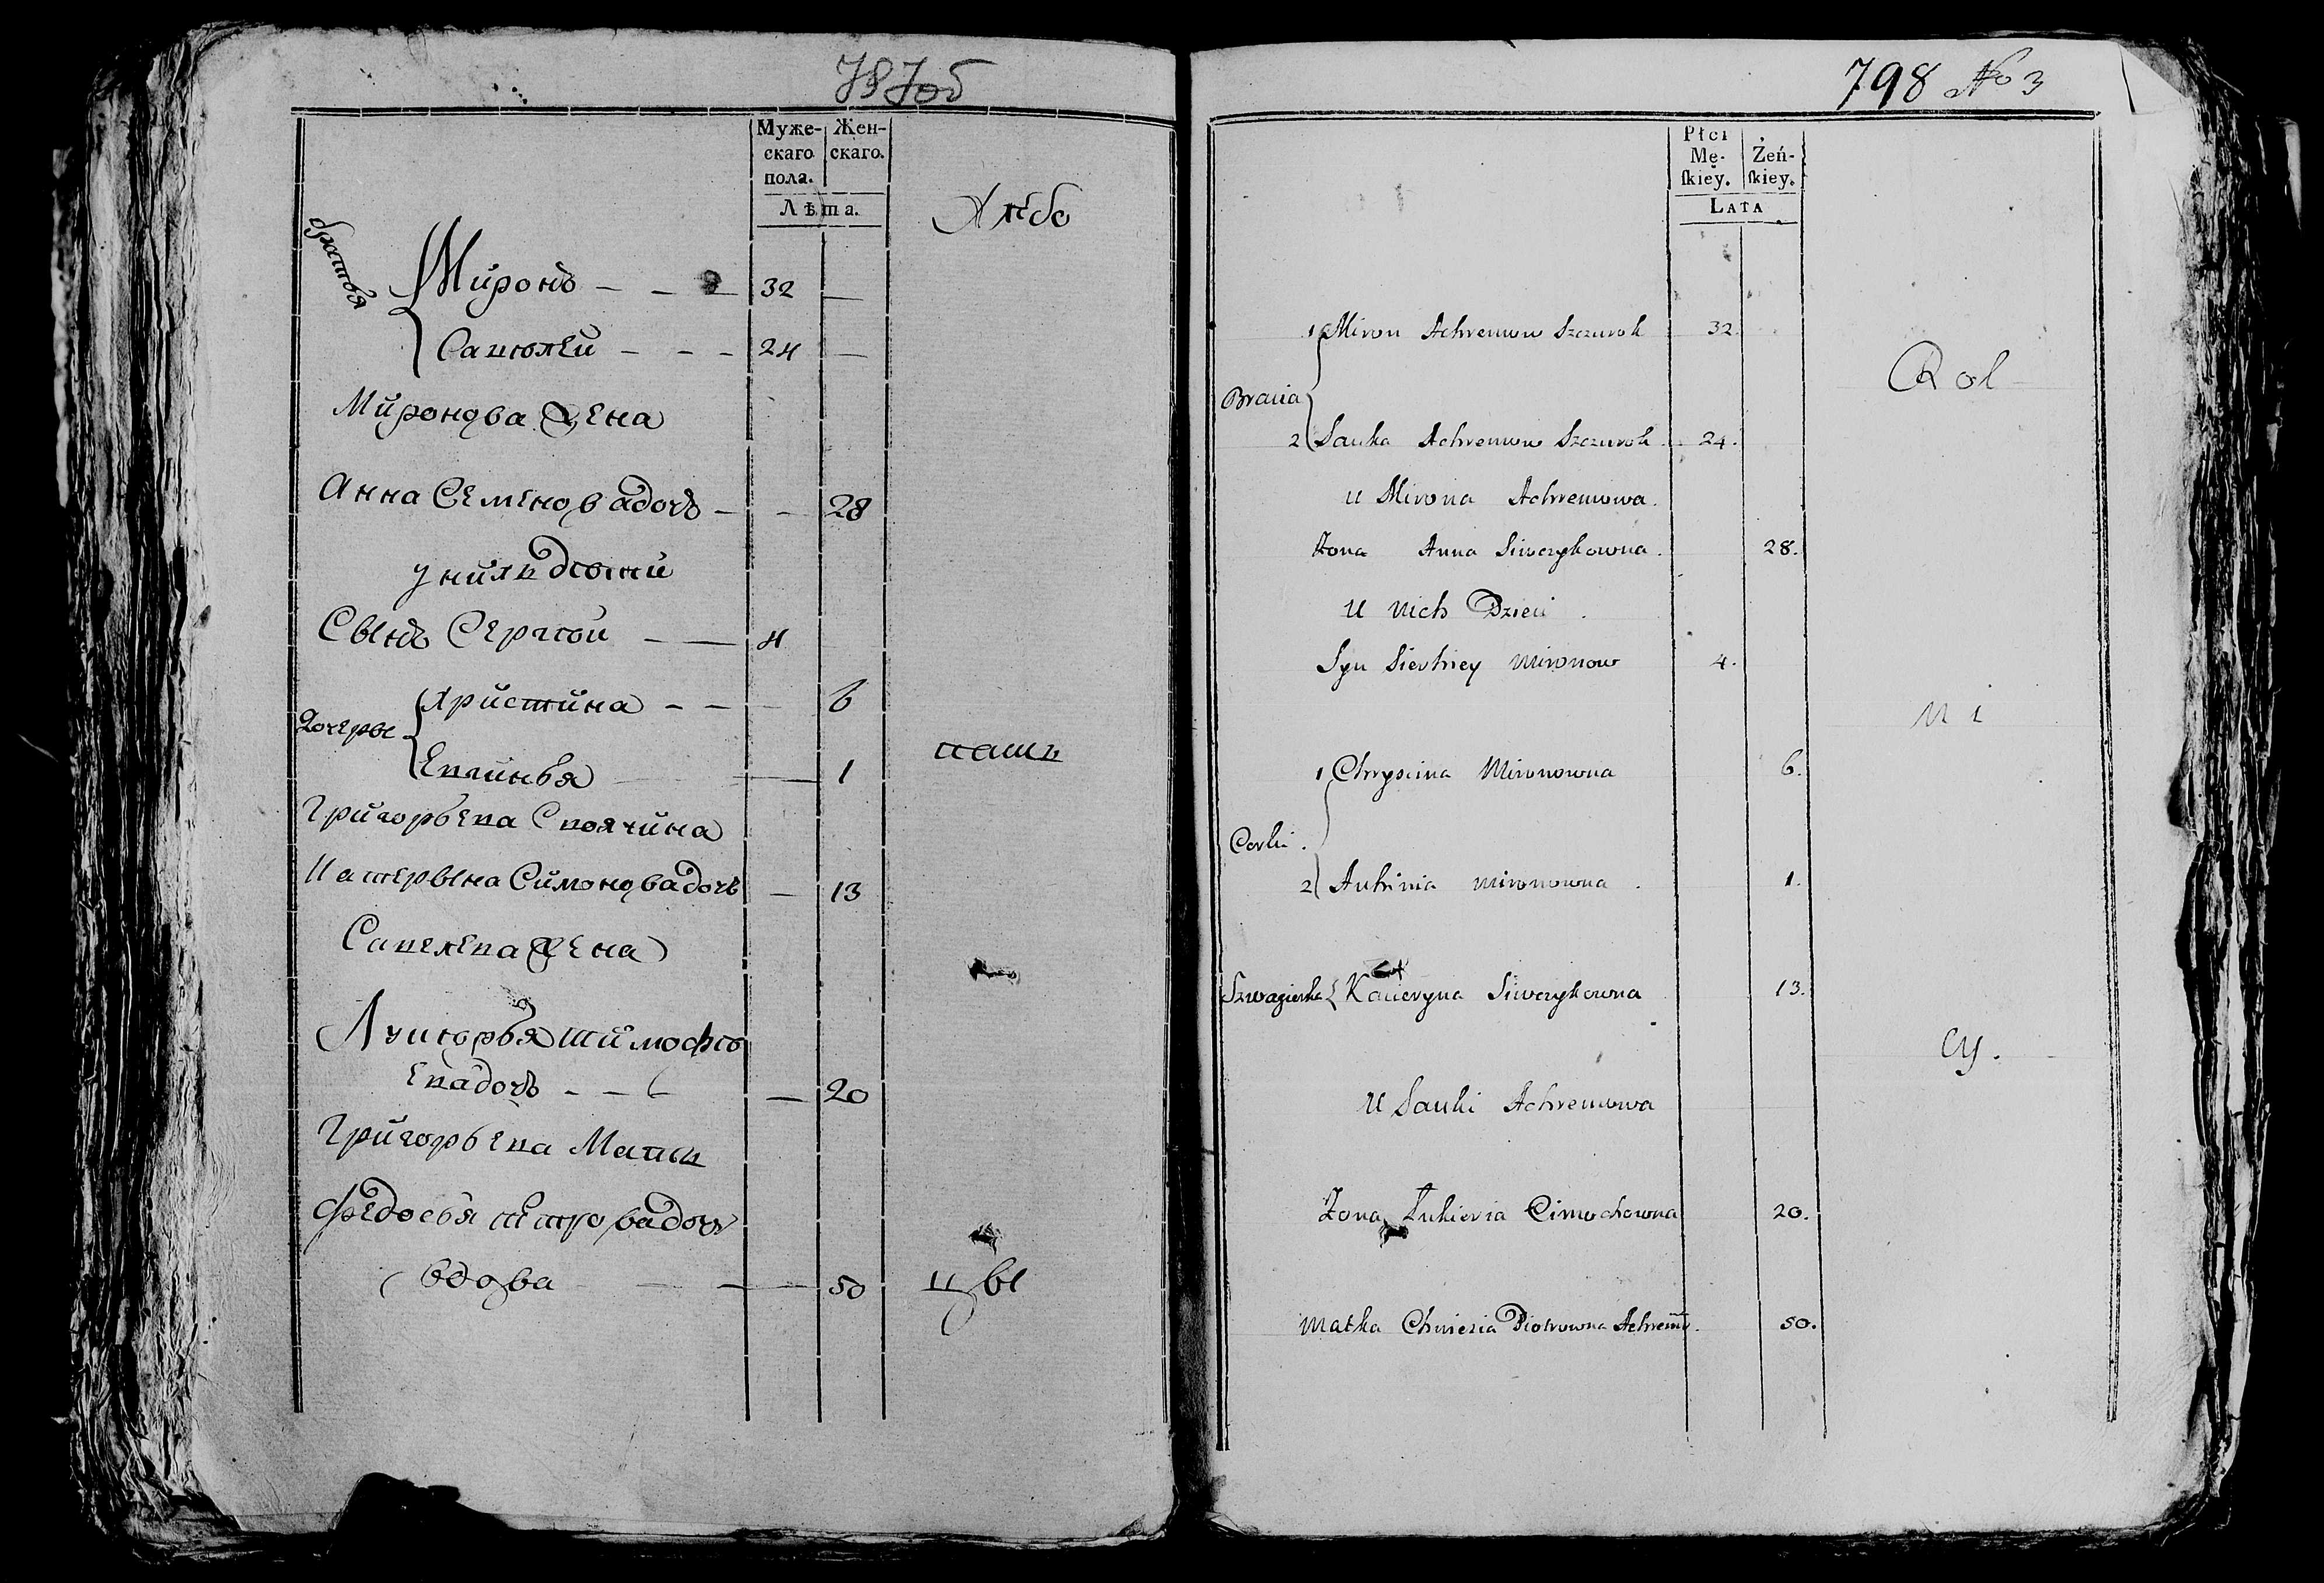 797об
Муже-
скаго
пола.
Жен-
скаго.
Лѣта.
братья
Миронъ - - - 32 -
Савелей - - - 24 -
Миронова жена
Анна Семенова дочь - - 28
у нихъ дѣти
Сынъ Сергей - - 4
дочеры
Христина - - - 6
Евгинья - 1
Григорьева Своячина
Катерына Симонова дочь - 13
Савелева жена
Лукерья Тимофѣ
ева дочь - - - 20
Григорьева Мать
Федосья петрова дочь
вдова - - 50
Хлѣбо
паш
цы
798 No 3
Płci
Mę-
ſkiey.
Żeń-
ſkiey.
LATA
Bracia
1 Miron Achremow Szczurok 32.
2 Sauka Achremow Szczurok 24.
u Mirona Achremowa.
Żona Anna Siwczykowna. 28.
U nich Dzieci.
Syn Sierhiey Mironow 4.
Corki.
1 Chryscina Mironowna 6.
2 Auhinia Mironowna. 1.
Szwagierka Kacieryna Siwczykowna 13.
U Sauki Achremowa
Żona Łukieria Cimochowna 20.
Matka Chwiesia Piotrowna Achrem. 50.
Rol
ni
cy.